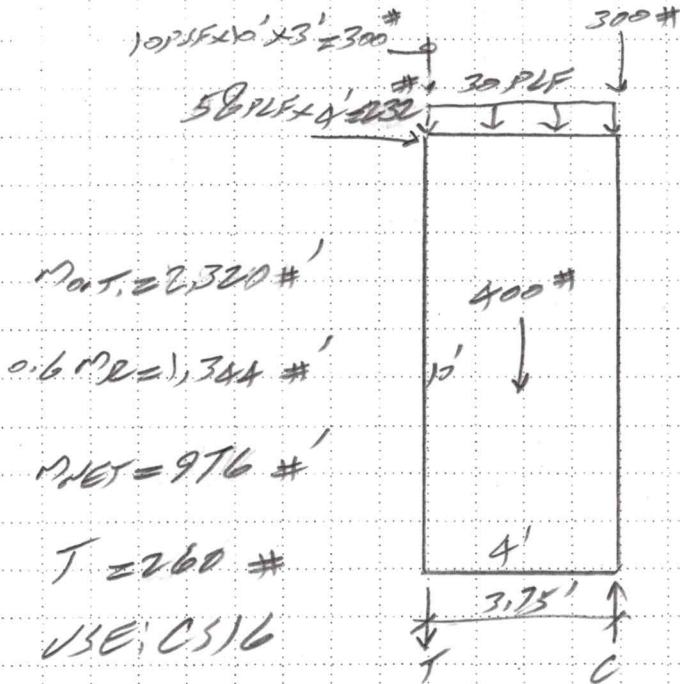 10PSF×10'×3'=300#
300#
58PLF×4'=232#
30 PLF
MO.T.=2,320 #'
400#
0.6 MR=1,344 #'
10'
MNET=976 #'
4'
T=260 #
3.75'
USE: CS16
T
C